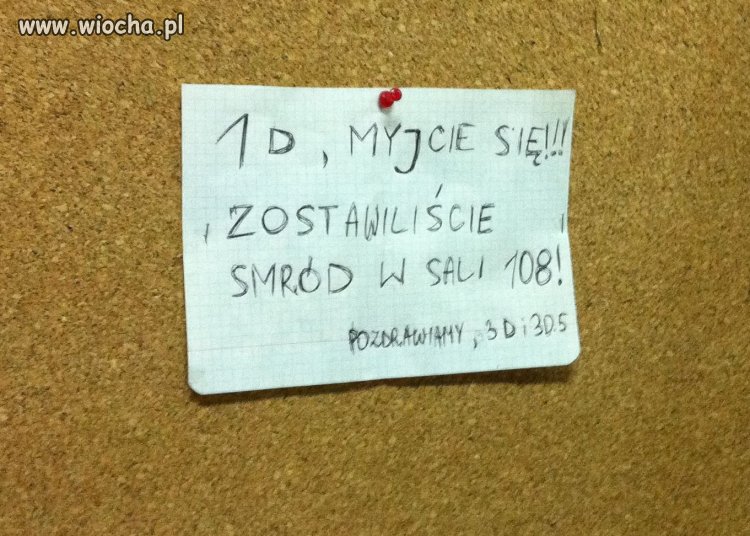 www.wiocha.pl
1D, MYJCIE SIĘ!!!
ZOSTAWILIŚCIE
SMRÓD W SALI 108!
POZDRAWIAMY, 3D i 3D.5